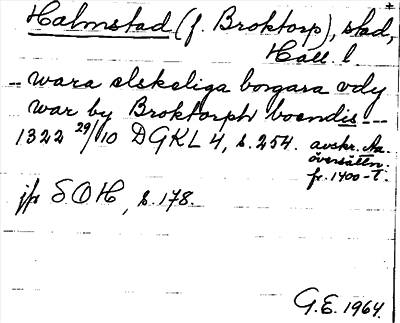 Halmstad (f. Broktorp), stad,
Hall. l.
-- wara elskeliga borgara vdy
war by Broktorph boendis --
1322 29/10 DGKL 4, s. 254. avskr. Aa.
översättn.
fr. 1400-t.
jfr SOH, s. 178.
G.E. 1964.